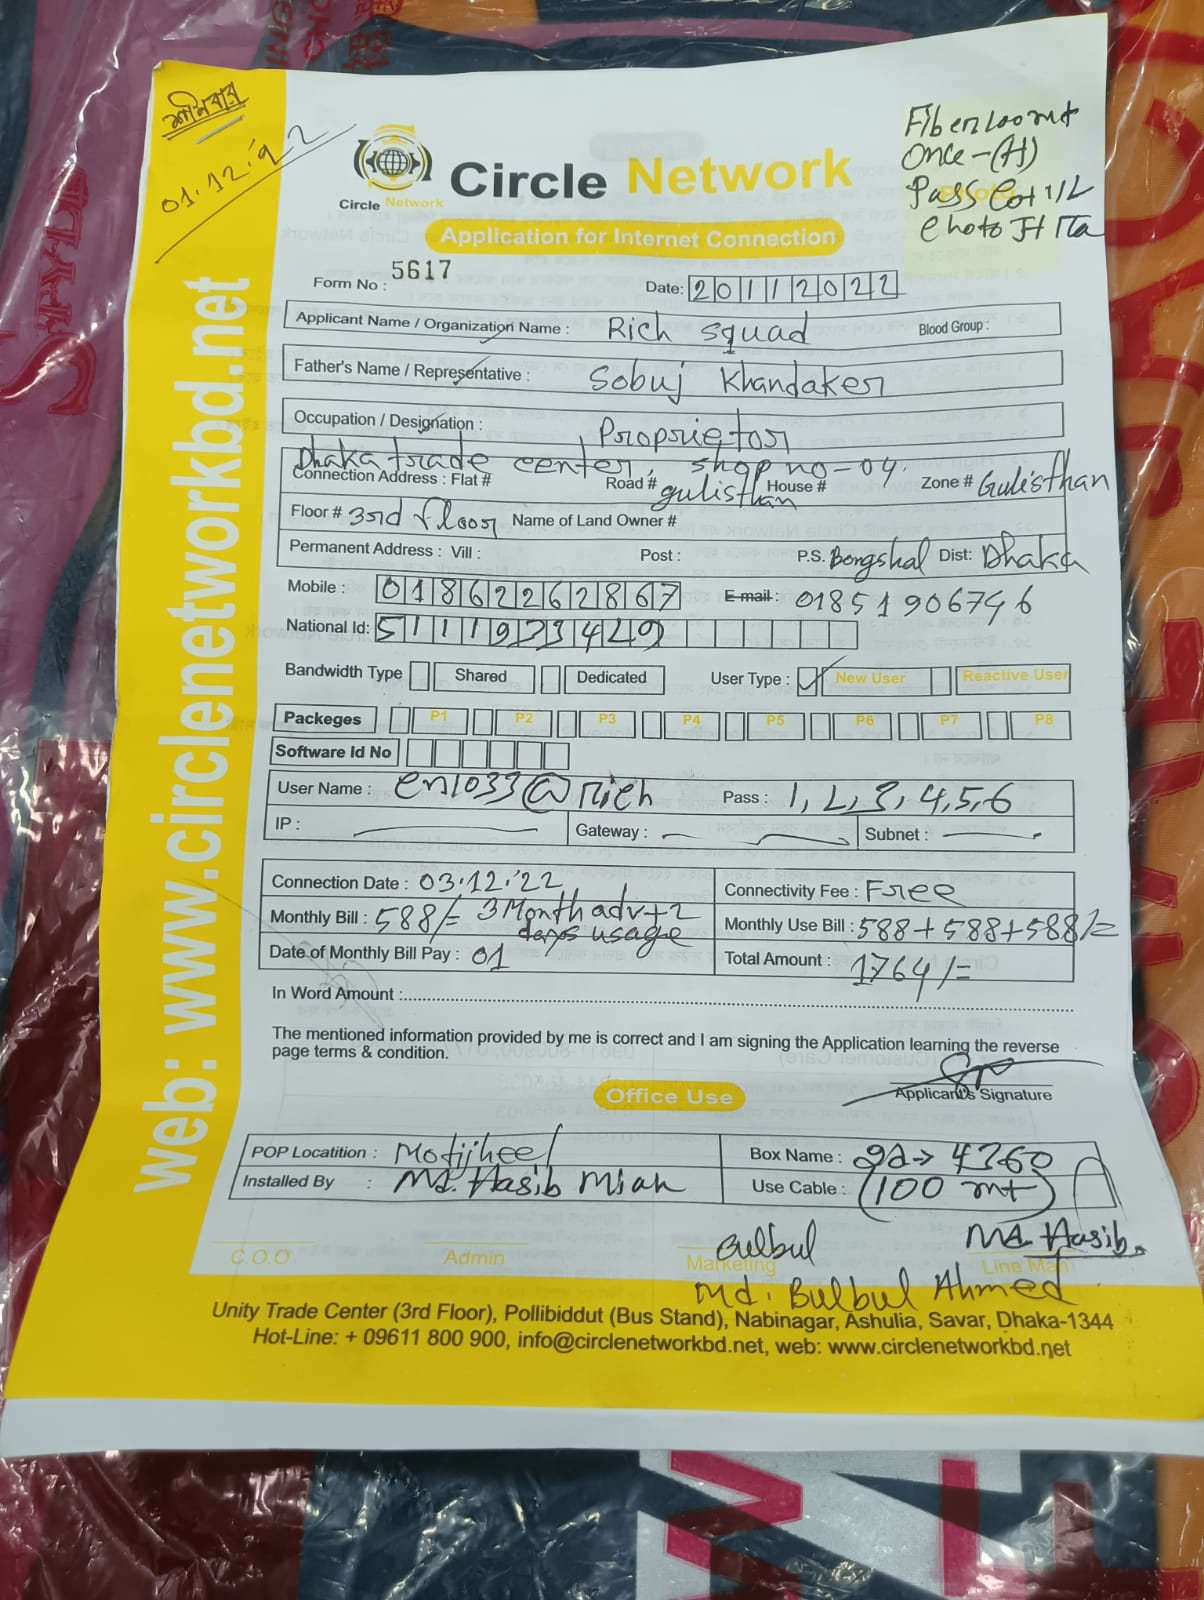 শনিবার
01.12.'22
Fiber
Once-(H)
Pass
Photo
Circle Network
Circle Network
Application for Internet Connection
Form No : 5617
Date: 20112022
Applicant Name / Organization Name : Rich Squad Blood Group :
Father's Name / Representative : Sobuj Khandaker
Occupation / Designation : Proprietor
Dhaka trade center, shop no-04.
Connection Address : Flat # Road # gulisthan House # Zone # Gulisthan
Floor # 3rd floor Name of Land Owner #
Permanent Address : Vill : Post : P.S. Bongshal Dist: Dhaka
Mobile : 01862262867 E-mail : 01851906746
National Id: 5111933449
Bandwidth Type Shared Dedicated User Type : New User Reactive User
Packeges P1 P2 P3 P4 P5 P6 P7 P8
Software Id No
User Name : en1033@rich Pass : 1,2,3,4,5,6
IP : Gateway : Subnet :
Connection Date : 03.12.'22 Connectivity Fee : Free
Monthly Bill : 588/= 3 Month adv+2 days usage Monthly Use Bill : 588+588+588/=
Date of Monthly Bill Pay : 01 Total Amount : 1764/=
In Word Amount :
The mentioned information provided by me is correct and I am signing the Application learning the reverse
page terms & condition.
Applicant's Signature
Office Use
POP Locatition : Motijheel Box Name : 4360
Installed By : Md. Hasib Miah Use Cable : 100 mt
Bulbul Md. Hasib
C.O.O Admin Marketing Line Man
Md. Bulbul Ahmed
Unity Trade Center (3rd Floor), Pollibiddut (Bus Stand), Nabinagar, Ashulia, Savar, Dhaka-1344
Hot-Line: + 09611 800 900, info@circlenetworkbd.net, web: www.circlenetworkbd.net
web: www.circlenetworkbd.net